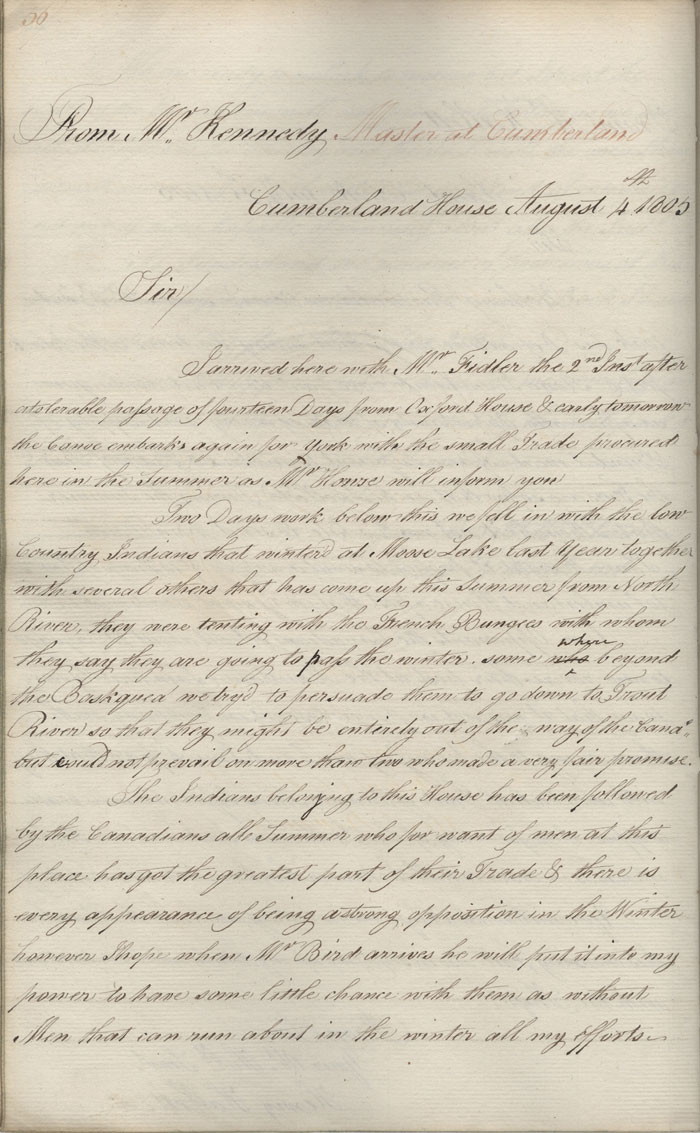 30
From Mr. Kennedy Master at Cumberland
Cumberland House August 4th 1805
Sir/
I arrived here with Mr. Fidler the 2nd Inst after
a tolerable passage of fourteen Days from Oxford House & early tomorrow
the Canoe embarks again for York with the small Trade procured
here in the Summer as Mr Howse will inform you
Two Days work below this we fell in with the low
Country Indians that winterd at Moose Lake last Year together
with several others that has come up this Summer from North
River, they were tenting with the French Bungees with whom
they say they are going to pass the winter. some where beyond
the Basquea we try'd to persuade them to go down to Trout
River so that they might be entirely out of the way of the Canads
but could not prevail on more than two who made a very fair promise.
The Indians belonging to this House has been followed
by the Canadians all Summer who for want of men at this
place has got the greatest part of their Trade & there is
every appearance of being a strong opposition in the Winter
however I hope when Mr Bird arrives he will put it into my
power to have some little chance with them as without
Men that can run about in the winter all my efforts